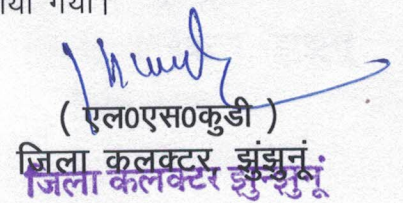 गया।
( एल0एस0कुडी )
जिला कलक्टर, झुंझुनूं
जिला कलक्टर झुन्झुनूं